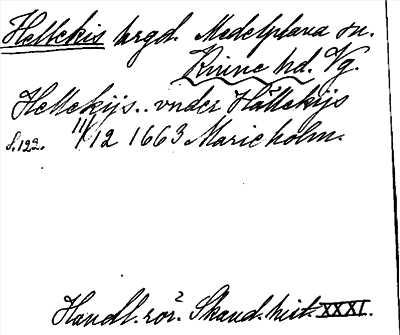 Hellekis hrgd. Medelplana sn.
Kinne hd. Vg.
Hellekijs.. vnder Hällekijs
s.122. 11/12 1663 Marieholm.
Handl. rör. Skand. hist. XXXI.